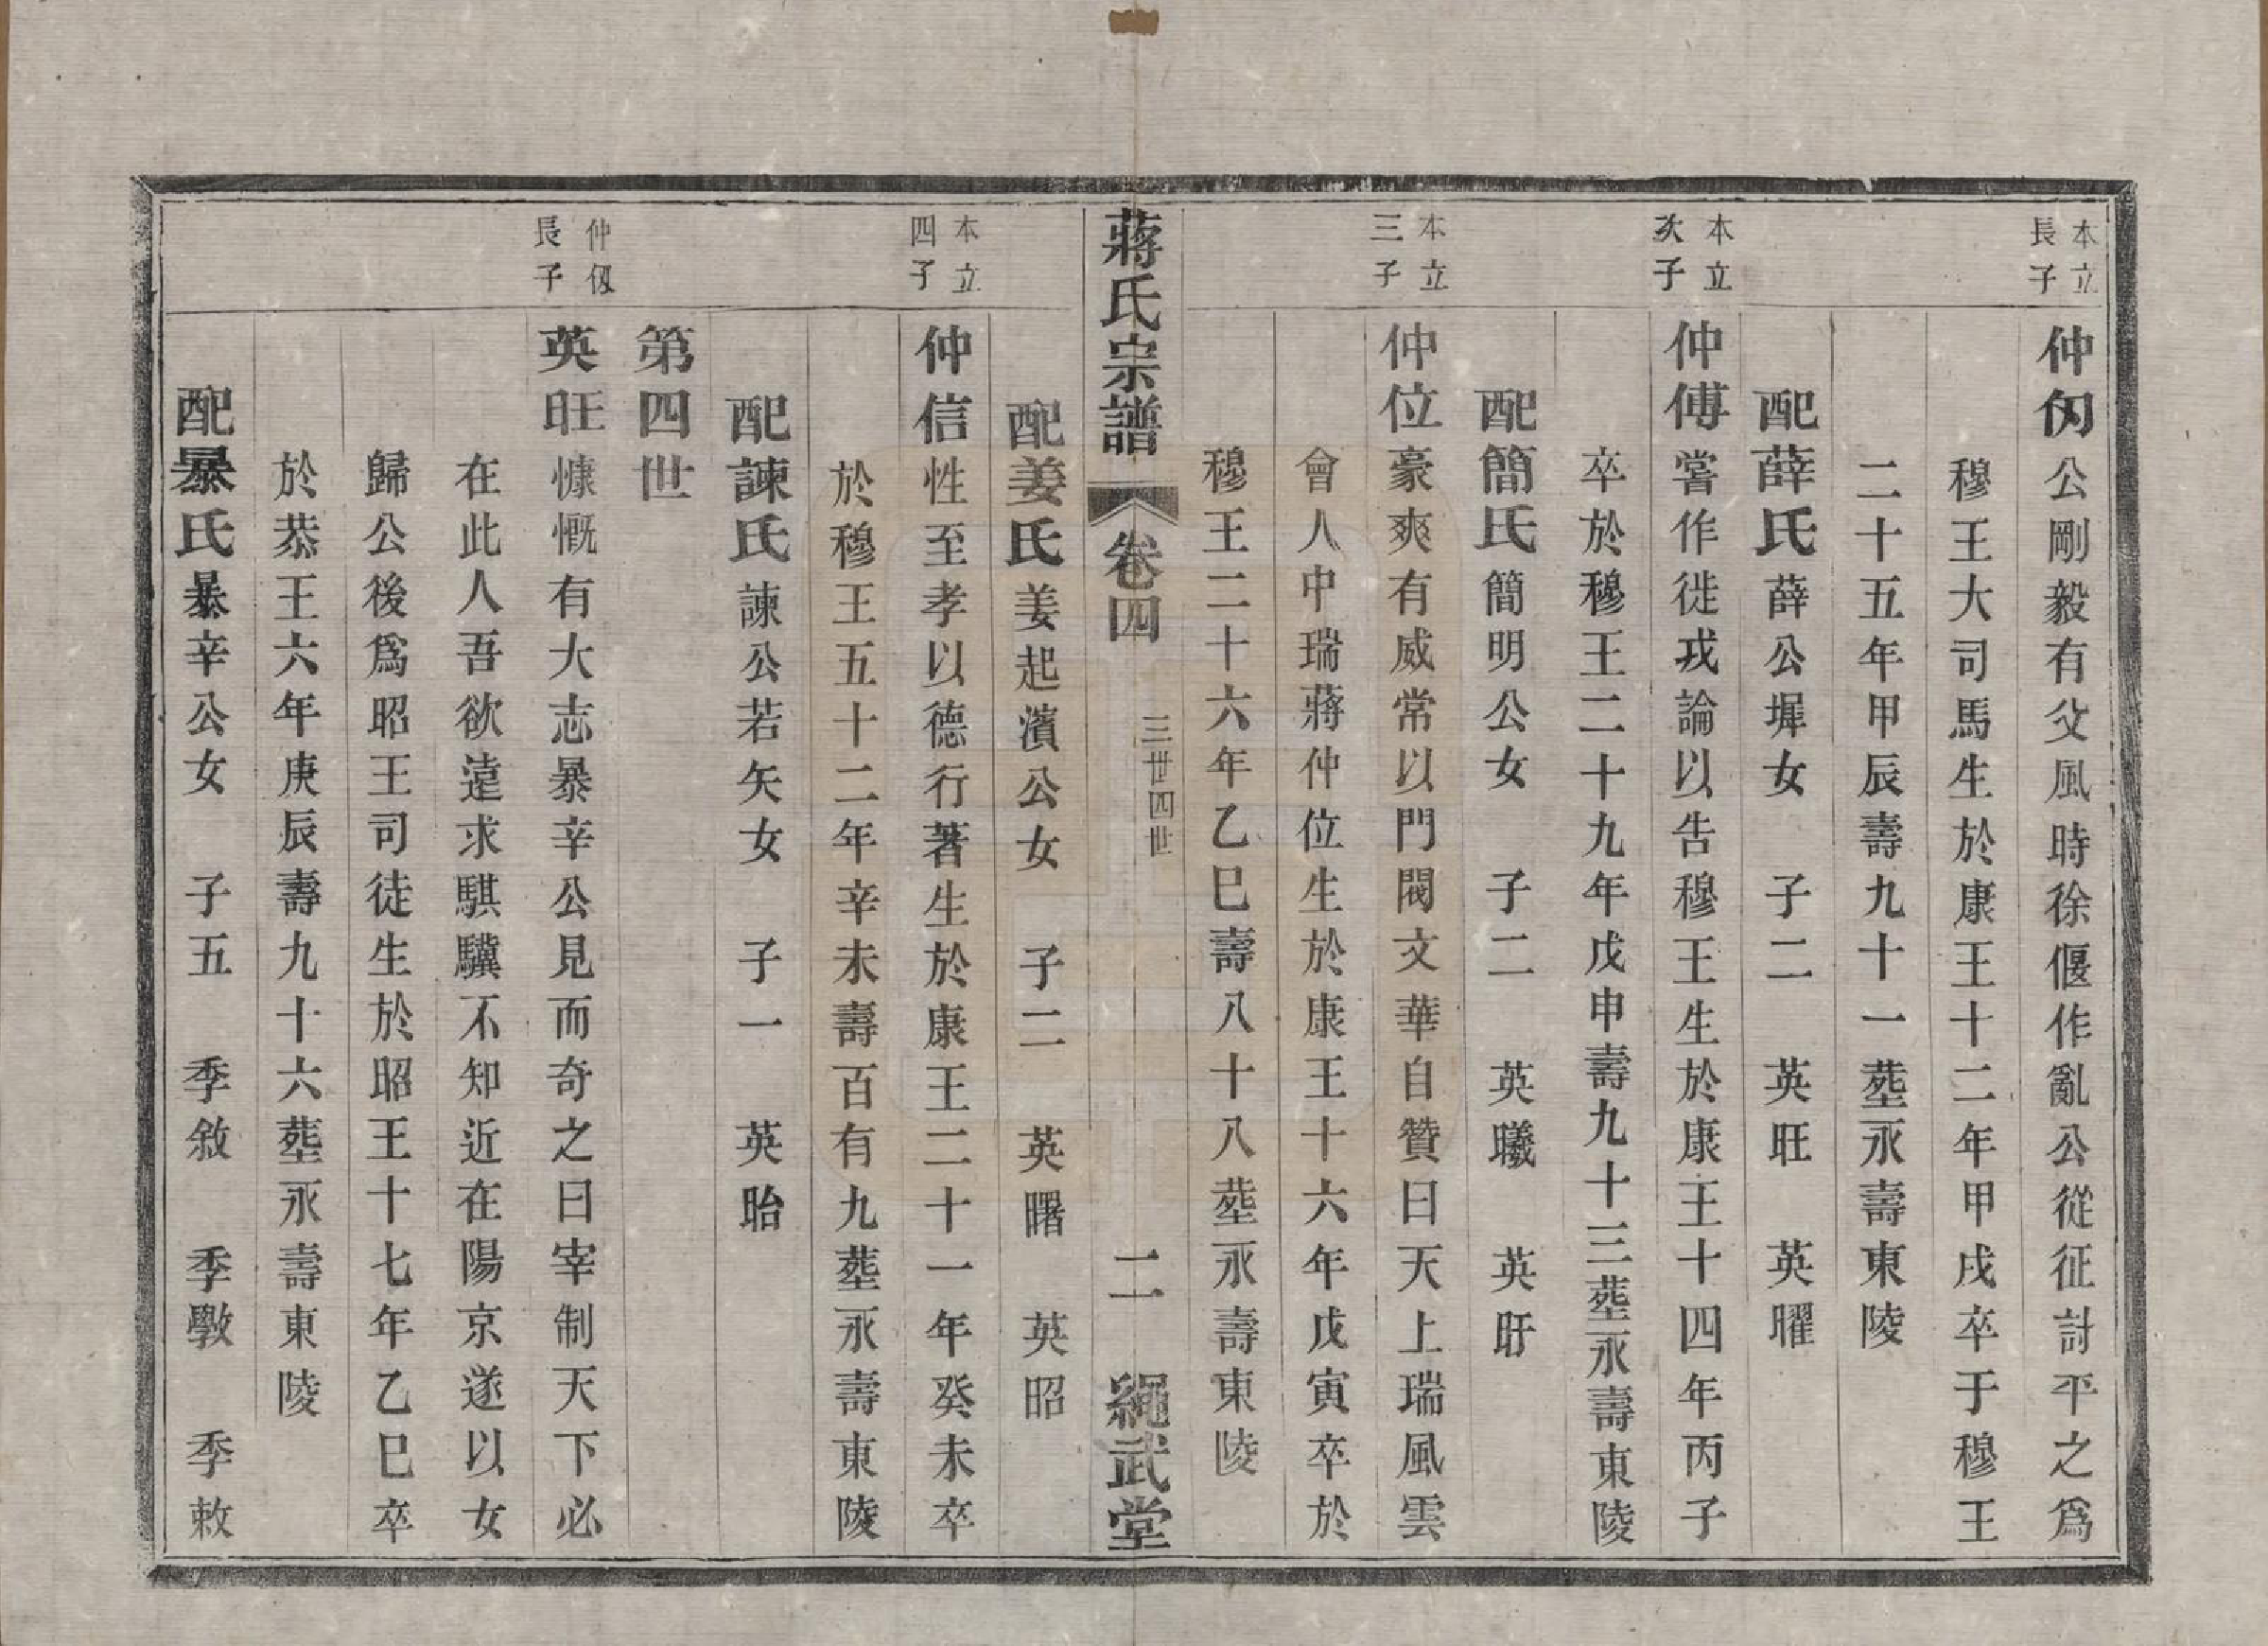 本立長子
仲仭公剛毅有父風時徐偃作亂公從征討平之爲
穆王大司馬生於康王十二年甲戌卒于穆王
二十五年甲辰壽九十一塟永壽東陵
配薛氏薛公墀女　子二　英旺　英曜
本立次子
仲傅嘗作徙戎論以告穆王生於康王十四年丙子
卒於穆王二十九年戊申壽九十三塟永壽東陵
配簡氏簡明公女　子二　英曦　英旴
本立三子
仲位豪爽有威常以門閥文華自贊曰天上瑞風雲
會人中瑞蔣仲位生於康王十六年戊寅卒於
穆王二十六年乙巳壽八十八塟永壽東陵
蔣氏宗譜　卷四　三世四世　二　繩武堂
配姜氏姜起濱公女　子二　英曙　英昭
本立四子
仲信性至孝以德行著生於康王二十一年癸未卒
於穆王五十二年辛未壽百有九塟永壽東陵
配諫氏諫公若矢女　子一　英眙
第四世
仲仭長子
英旺慷慨有大志暴辛公見而奇之曰宰制天下必
在此人吾欲遠求騏驥不知近在陽京遂以女
歸公後爲昭王司徒生於昭王十七年乙巳卒
於恭王六年庚辰壽九十六塟永壽東陵
配暴氏暴辛公女　子五　季敘　季斅　季敕